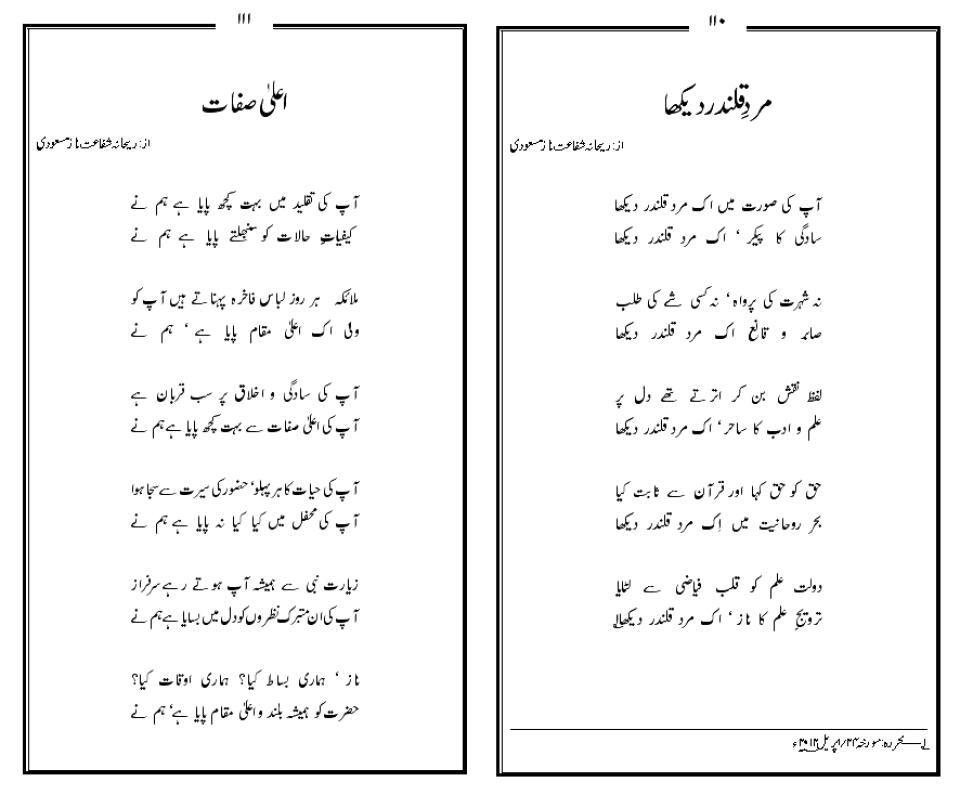 ۱۱۰
مردِ قلندر دیکھا
از: ریحانہ شفاعت ناز مسعودی
آپ کی صورت میں اک مرد قلندر دیکھا
سادگی کا پیکر ‘ اک مرد قلندر دیکھا
نہ شہرت کی پرواہ‘ نہ کسی شے کی طلب
صابر و قانع اک مرد قلندر دیکھا
لفظ نقش بن کر اترتے تھے دل پر
علم و ادب کا ساحر‘ اک مرد قلندر دیکھا
حق کو حق کہا اور قرآن سے ثابت کیا
بحر روحانیت میں اِک مرد قلندر دیکھا
دولت علم کو قلب فیاضی سے لٹایا
ترویجِ علم کا ناز‘ اک مرد قلندر دیکھا۱
۱ محررہ: مورخہ ۲۴/اپریل ۲۰۱۲ء
۱۱۱
اعلیٰ صفات
از: ریحانہ شفاعت ناز مسعودی
آپ کی تقلید میں بہت کچھ پایا ہے ہم نے
کیفیاتِ حالات کو سنبھلتے پایا ہے ہم نے
ملائکہ ہر روز لباس فاخرہ پہناتے ہیں آپ کو
ولی اک اعلیٰ مقام پایا ہے ‘ ہم نے
آپ کی سادگی و اخلاق پر سب قربان ہے
آپ کی اعلیٰ صفات سے بہت کچھ پایا ہے ہم نے
آپ کی حیات کا ہر پہلو‘ حضور کی سیرت سے سجا ہوا
آپ کی محفل میں کیا کیا نہ پایا ہے ہم نے
زیارت نبی سے ہمیشہ آپ ہوتے رہے سرفراز
آپ کی ان متبرک نظروں کو دل میں بسایا ہے ہم نے
ناز ‘ ہماری بساط کیا؟ ہماری اوقات کیا؟
حضرت کو ہمیشہ بلند و اعلیٰ مقام پایا ہے‘ ہم نے